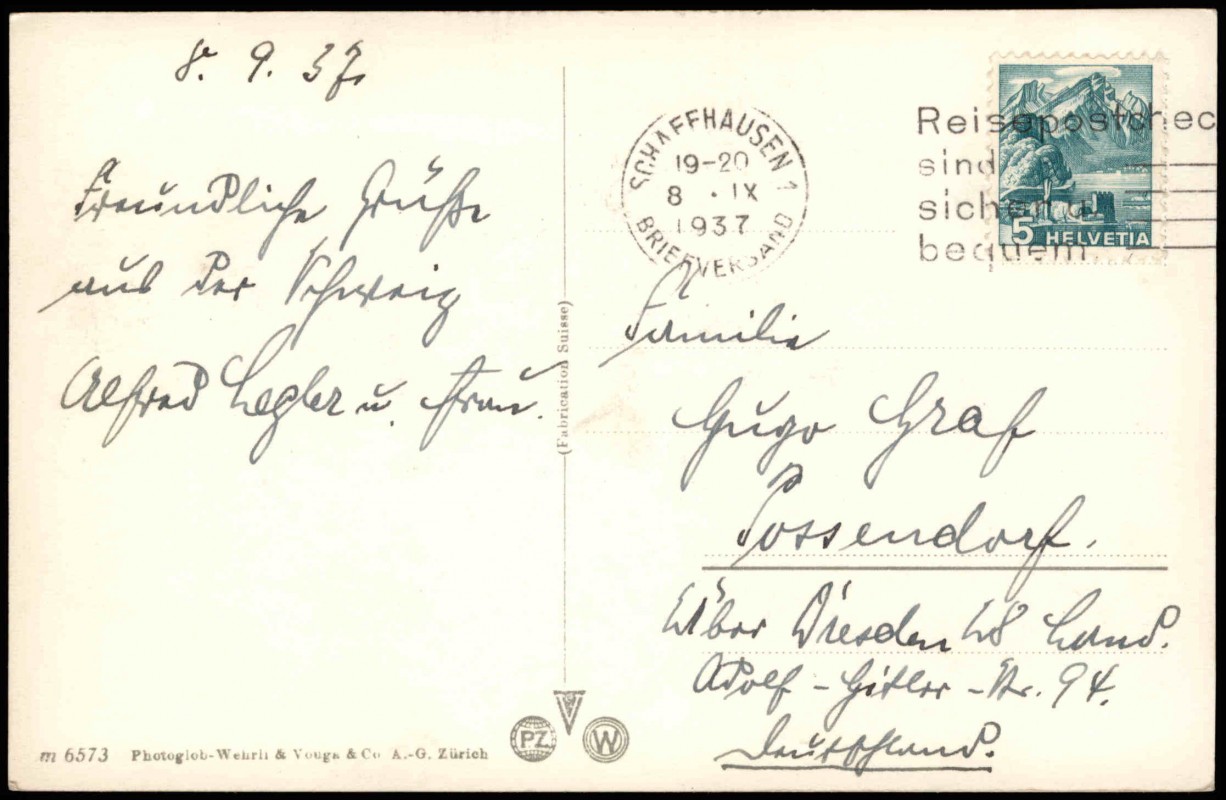 8. 9. 37.
Freundliche Grüße
aus der Schweiz
Alfred Legler u. Frau.
(Fabrication Suisse)
SCHAFFHAUSEN 1
19-20
8 · IX
1937
BRIEFVERSAND
Reisepostchec
sind
sicher u.
bequem
5 HELVETIA
Familie
Hugo Graf
Possendorf.
Über Dresden 28 Land.
Adolf-Hitler-Str. 94.
Deutschland.
m 6573 Photoglob-Wehrli & Vouga & Co A.-G. Zürich
PZ V W